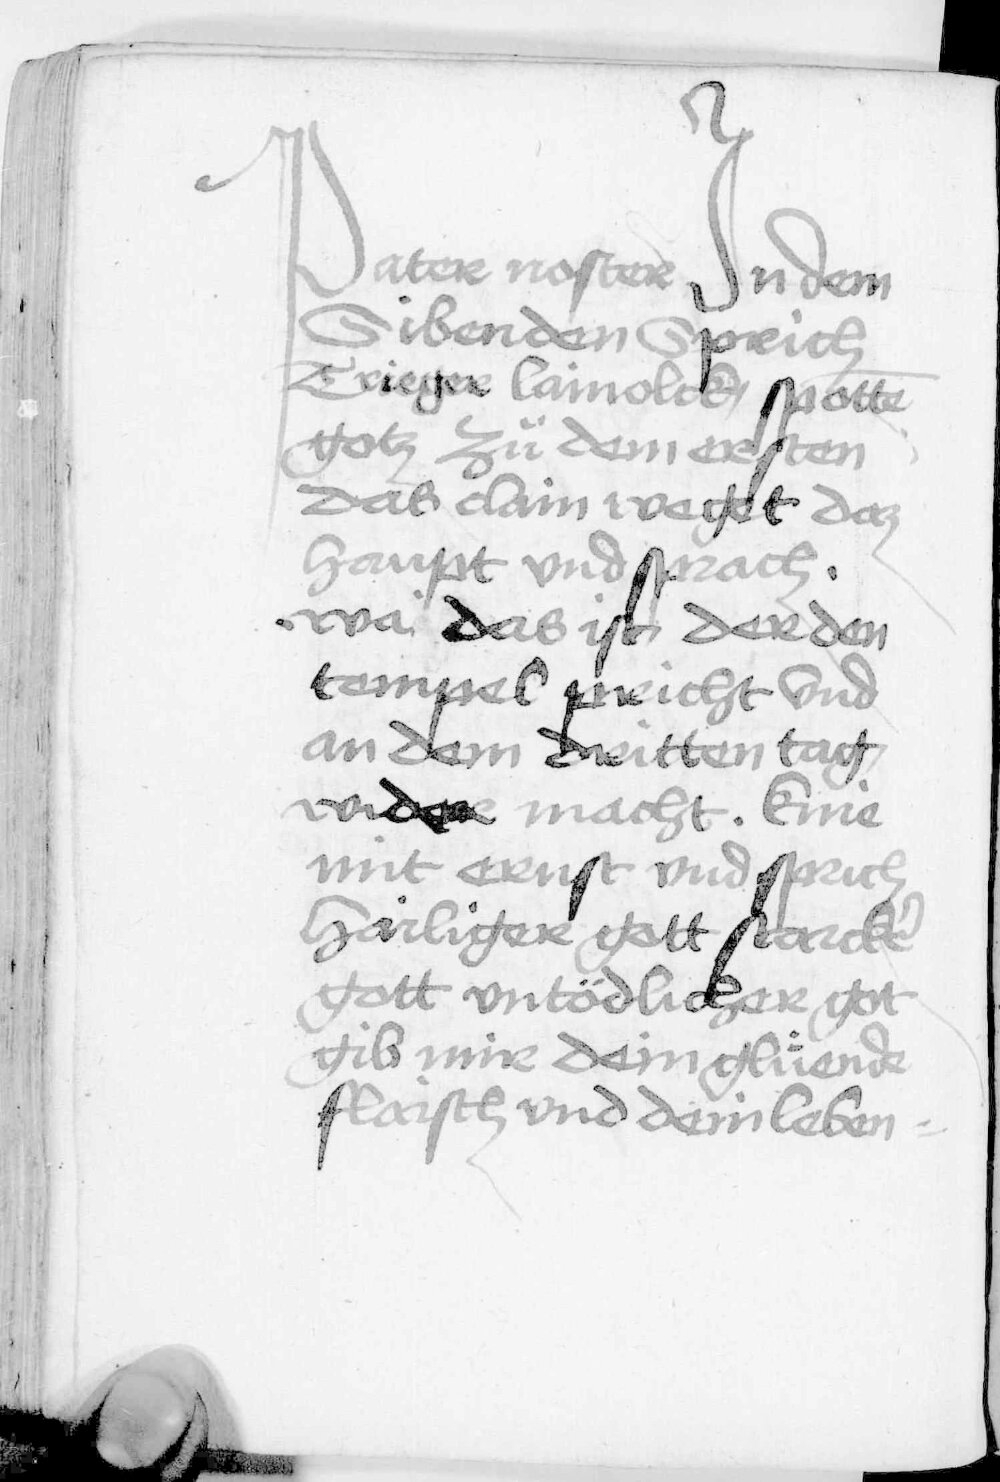 Pater noster In dem
Sibenden Sprich
Trieger lainolck spotte
gotz zü dem ersten
das clain weget daz
haupt vnd sprach.
.wa. das ist der den
tempel pricht vnd
an dem dritten tag
wider macht. knie
mit ernst vnd sprich
hailiger gott starcker
gott vntödlicher got
gib mir dein glüende
flaisch vnd dein leben=